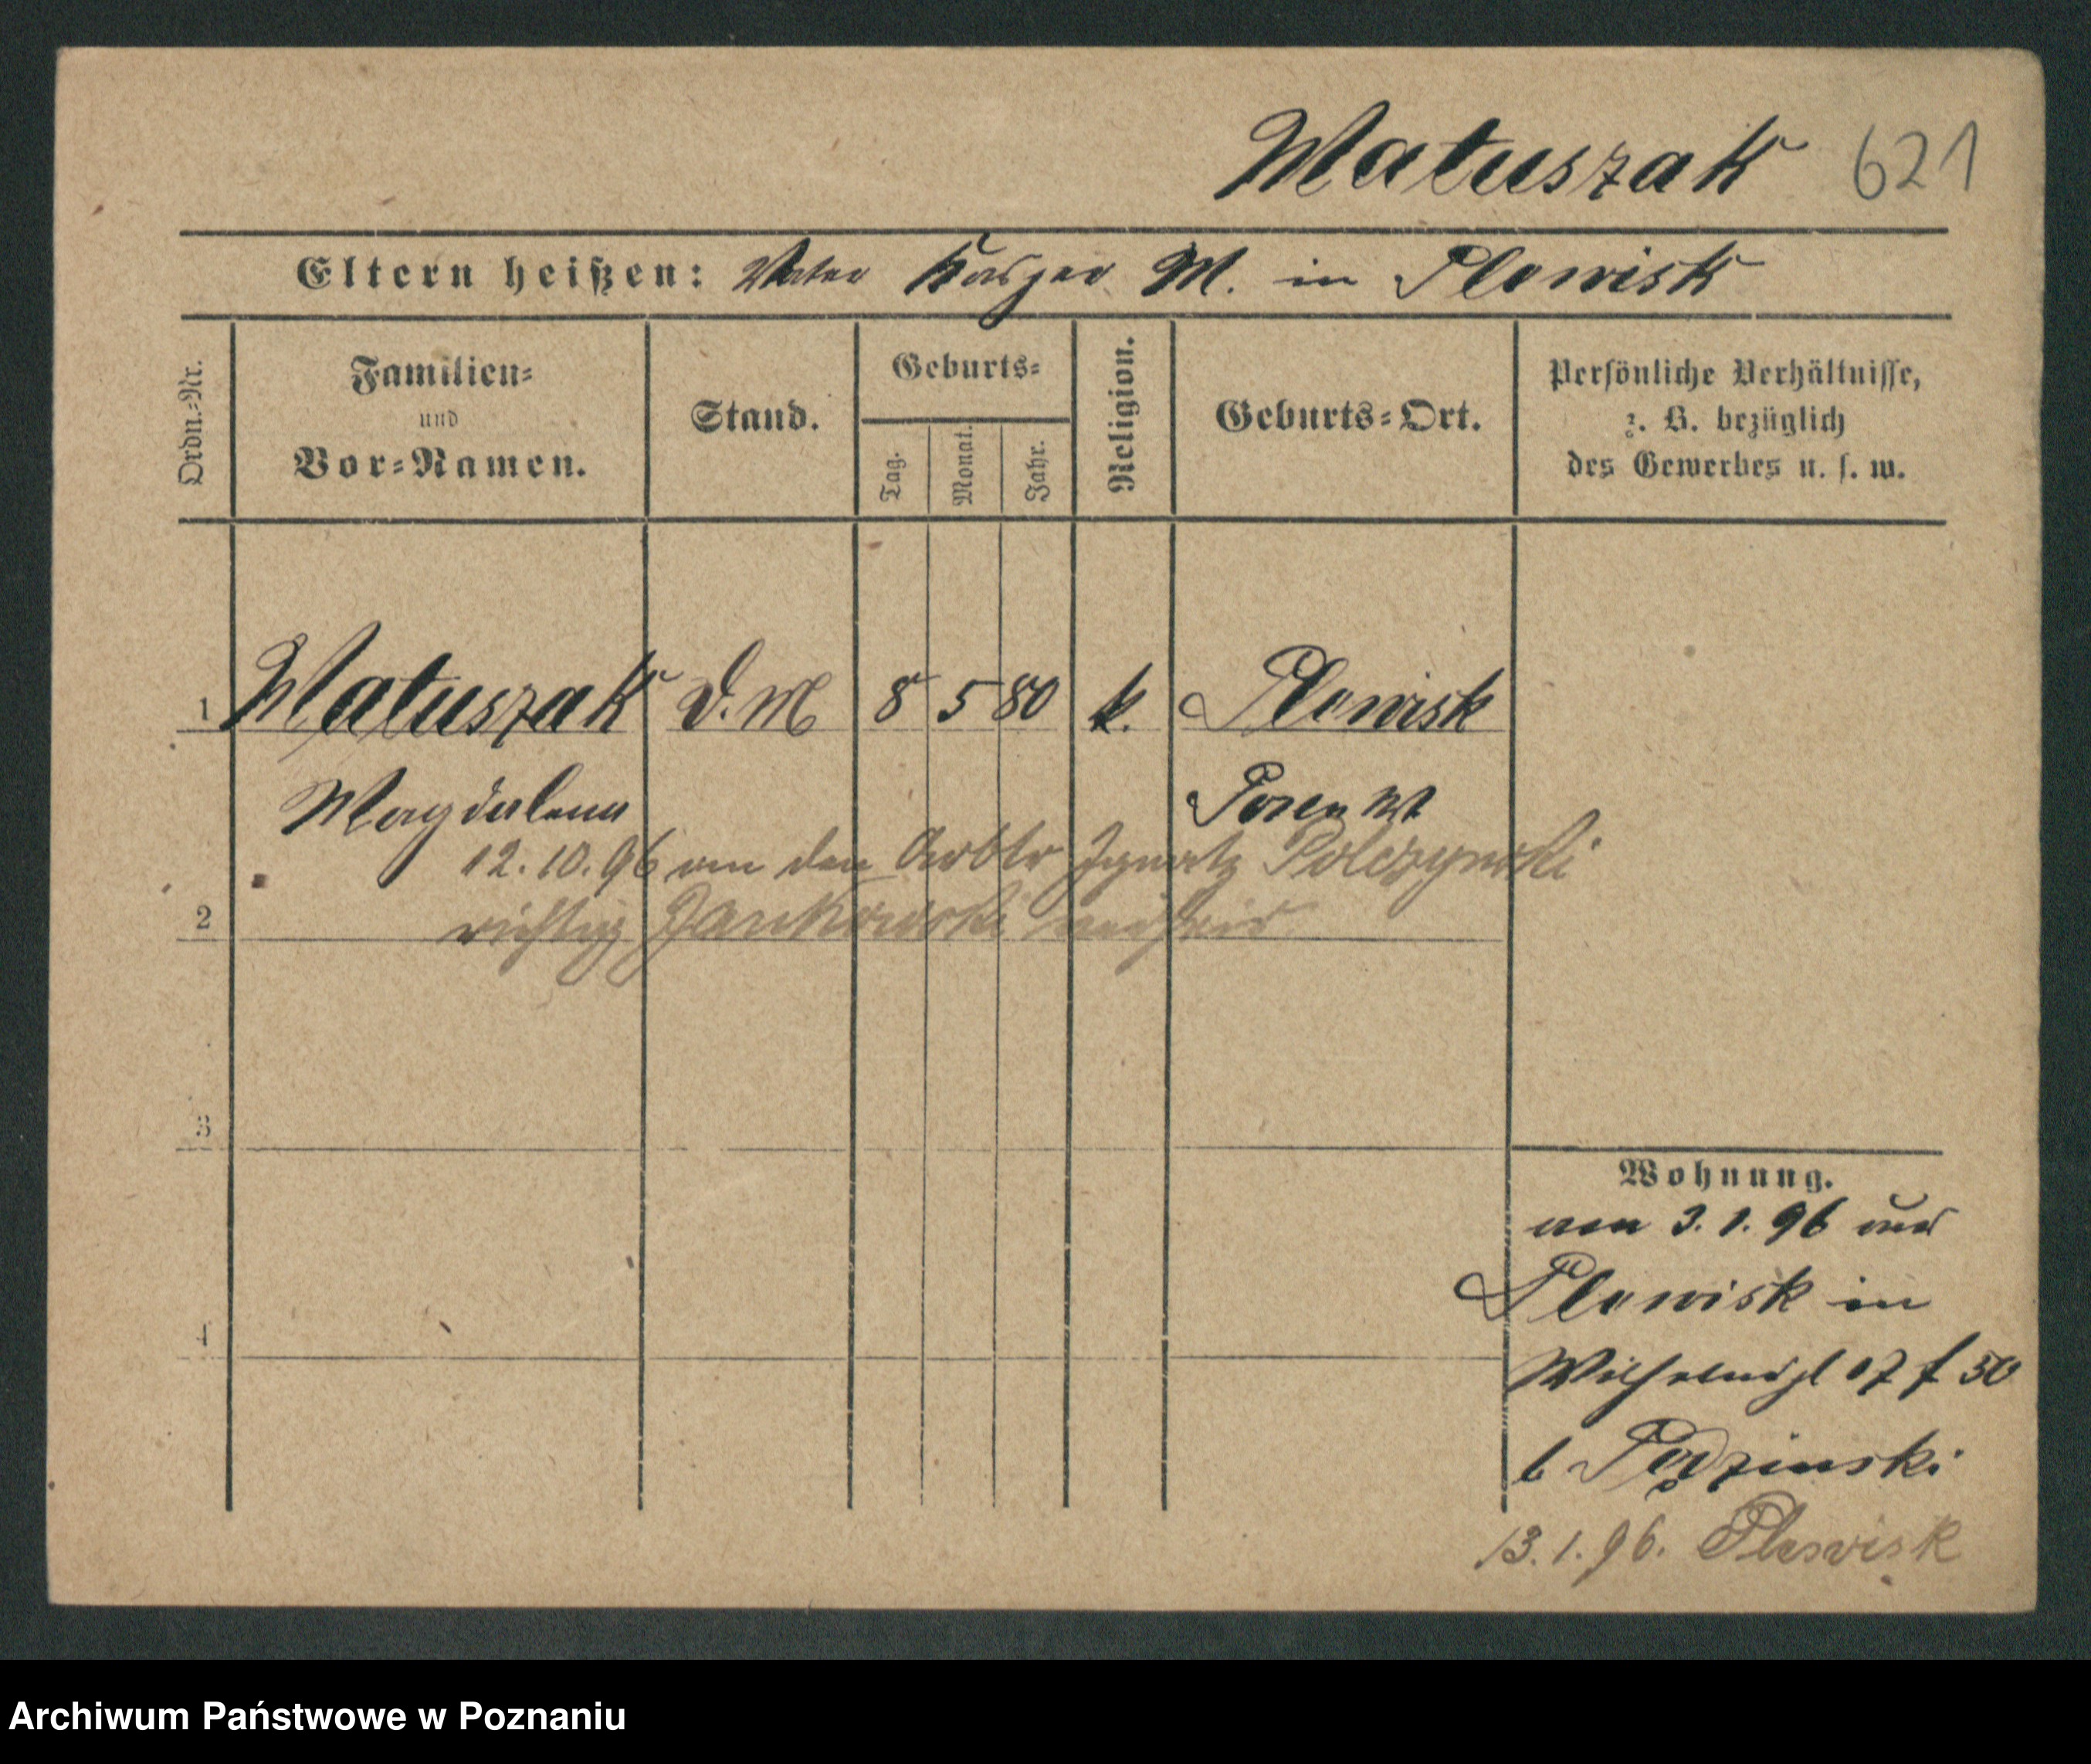 Matuszak 621
Eltern heißen: Vater Kasper M. in Plewisk
Ordn.-Nr.
Familien-
und
Vor-Namen.
Stand.
Geburts-
Tag.
Monat.
Jahr.
Religion.
Geburts-Ort.
Persönliche Verhältnisse,
z. B. bezüglich
des Gewerbes u. s. w.
1 Matuszak D. M 8 5 80 k. Plewisk
Magdalena Posen W
12.10.96 an den Arbtr Ignatz Polczynski
2 richtig Jankowski
3
4
Wohnung.
am 3.1.96 aus
Plewisk in
Wilhelmspl 17
b Pędzinski
13.1.96. Plewisk
Archiwum Państwowe w Poznaniu